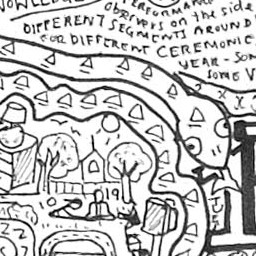 NOWLEDGE
PERFORMAN
observers on the side
DIFFERENT SEGMENTS AROUND
FOR DIFFERENT CEREMONIE
YEAR - SOM
SOME V
19